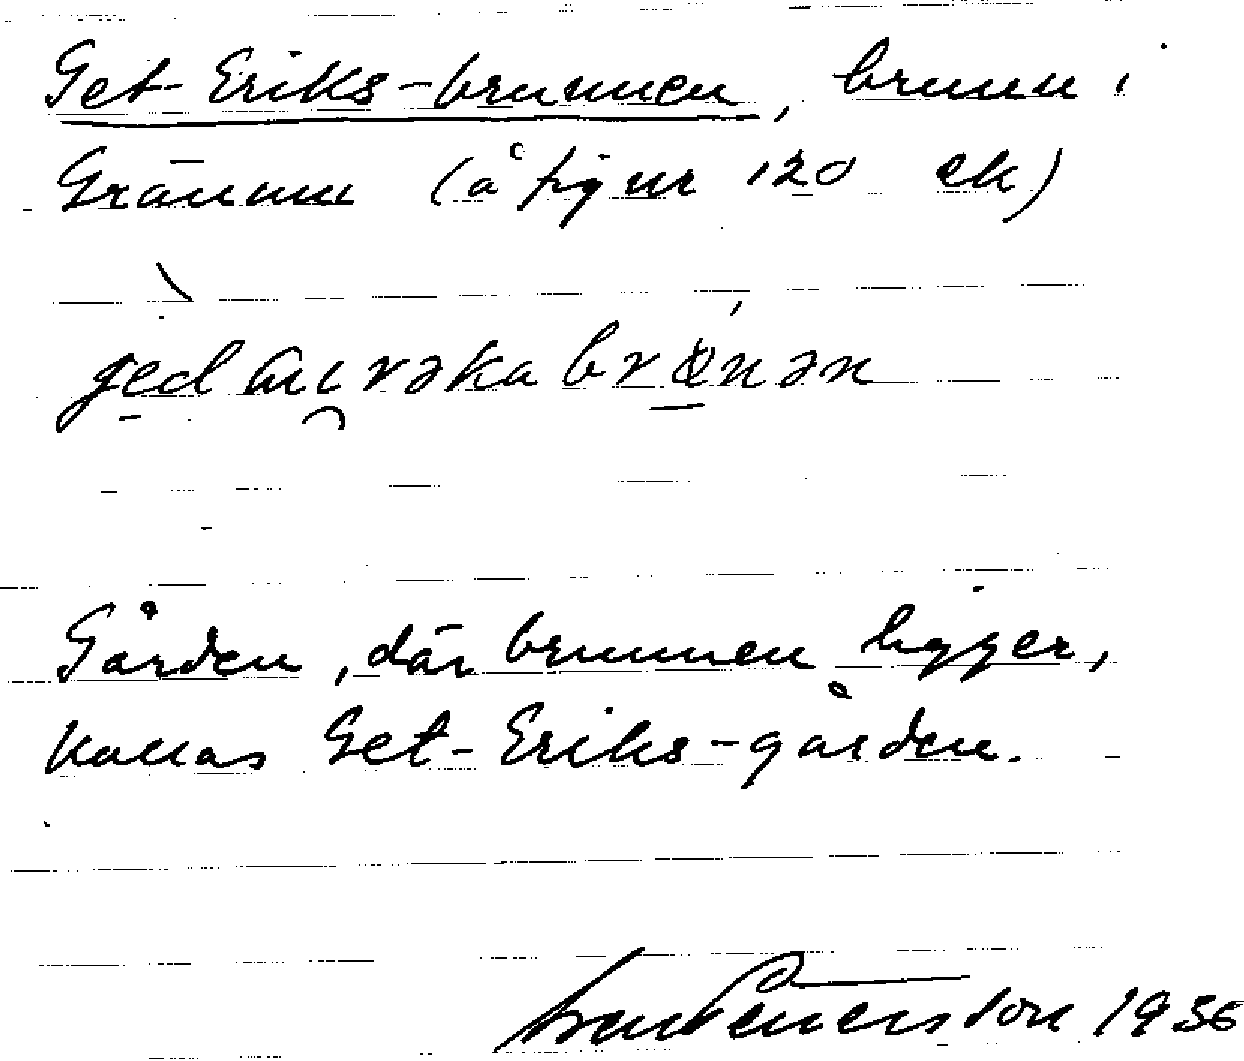 Get-Eriks-brunnen, brunn i
Gränum (å figur 120 ek)
Gården, där brunnen ligger,
kallas Get-Eriks-gården.
1936